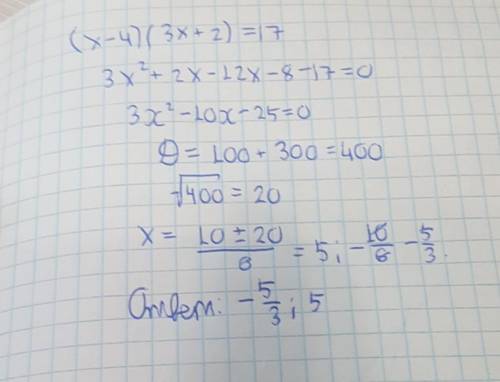 (x-4)(3x+2)=17
3x²+2x-12x-8-17=0
3x²-10x-25=0
D=100+300=400
√400=20
x= (10±20)/6 =5; -10/6 -5/3.
Ответ: -5/3; 5